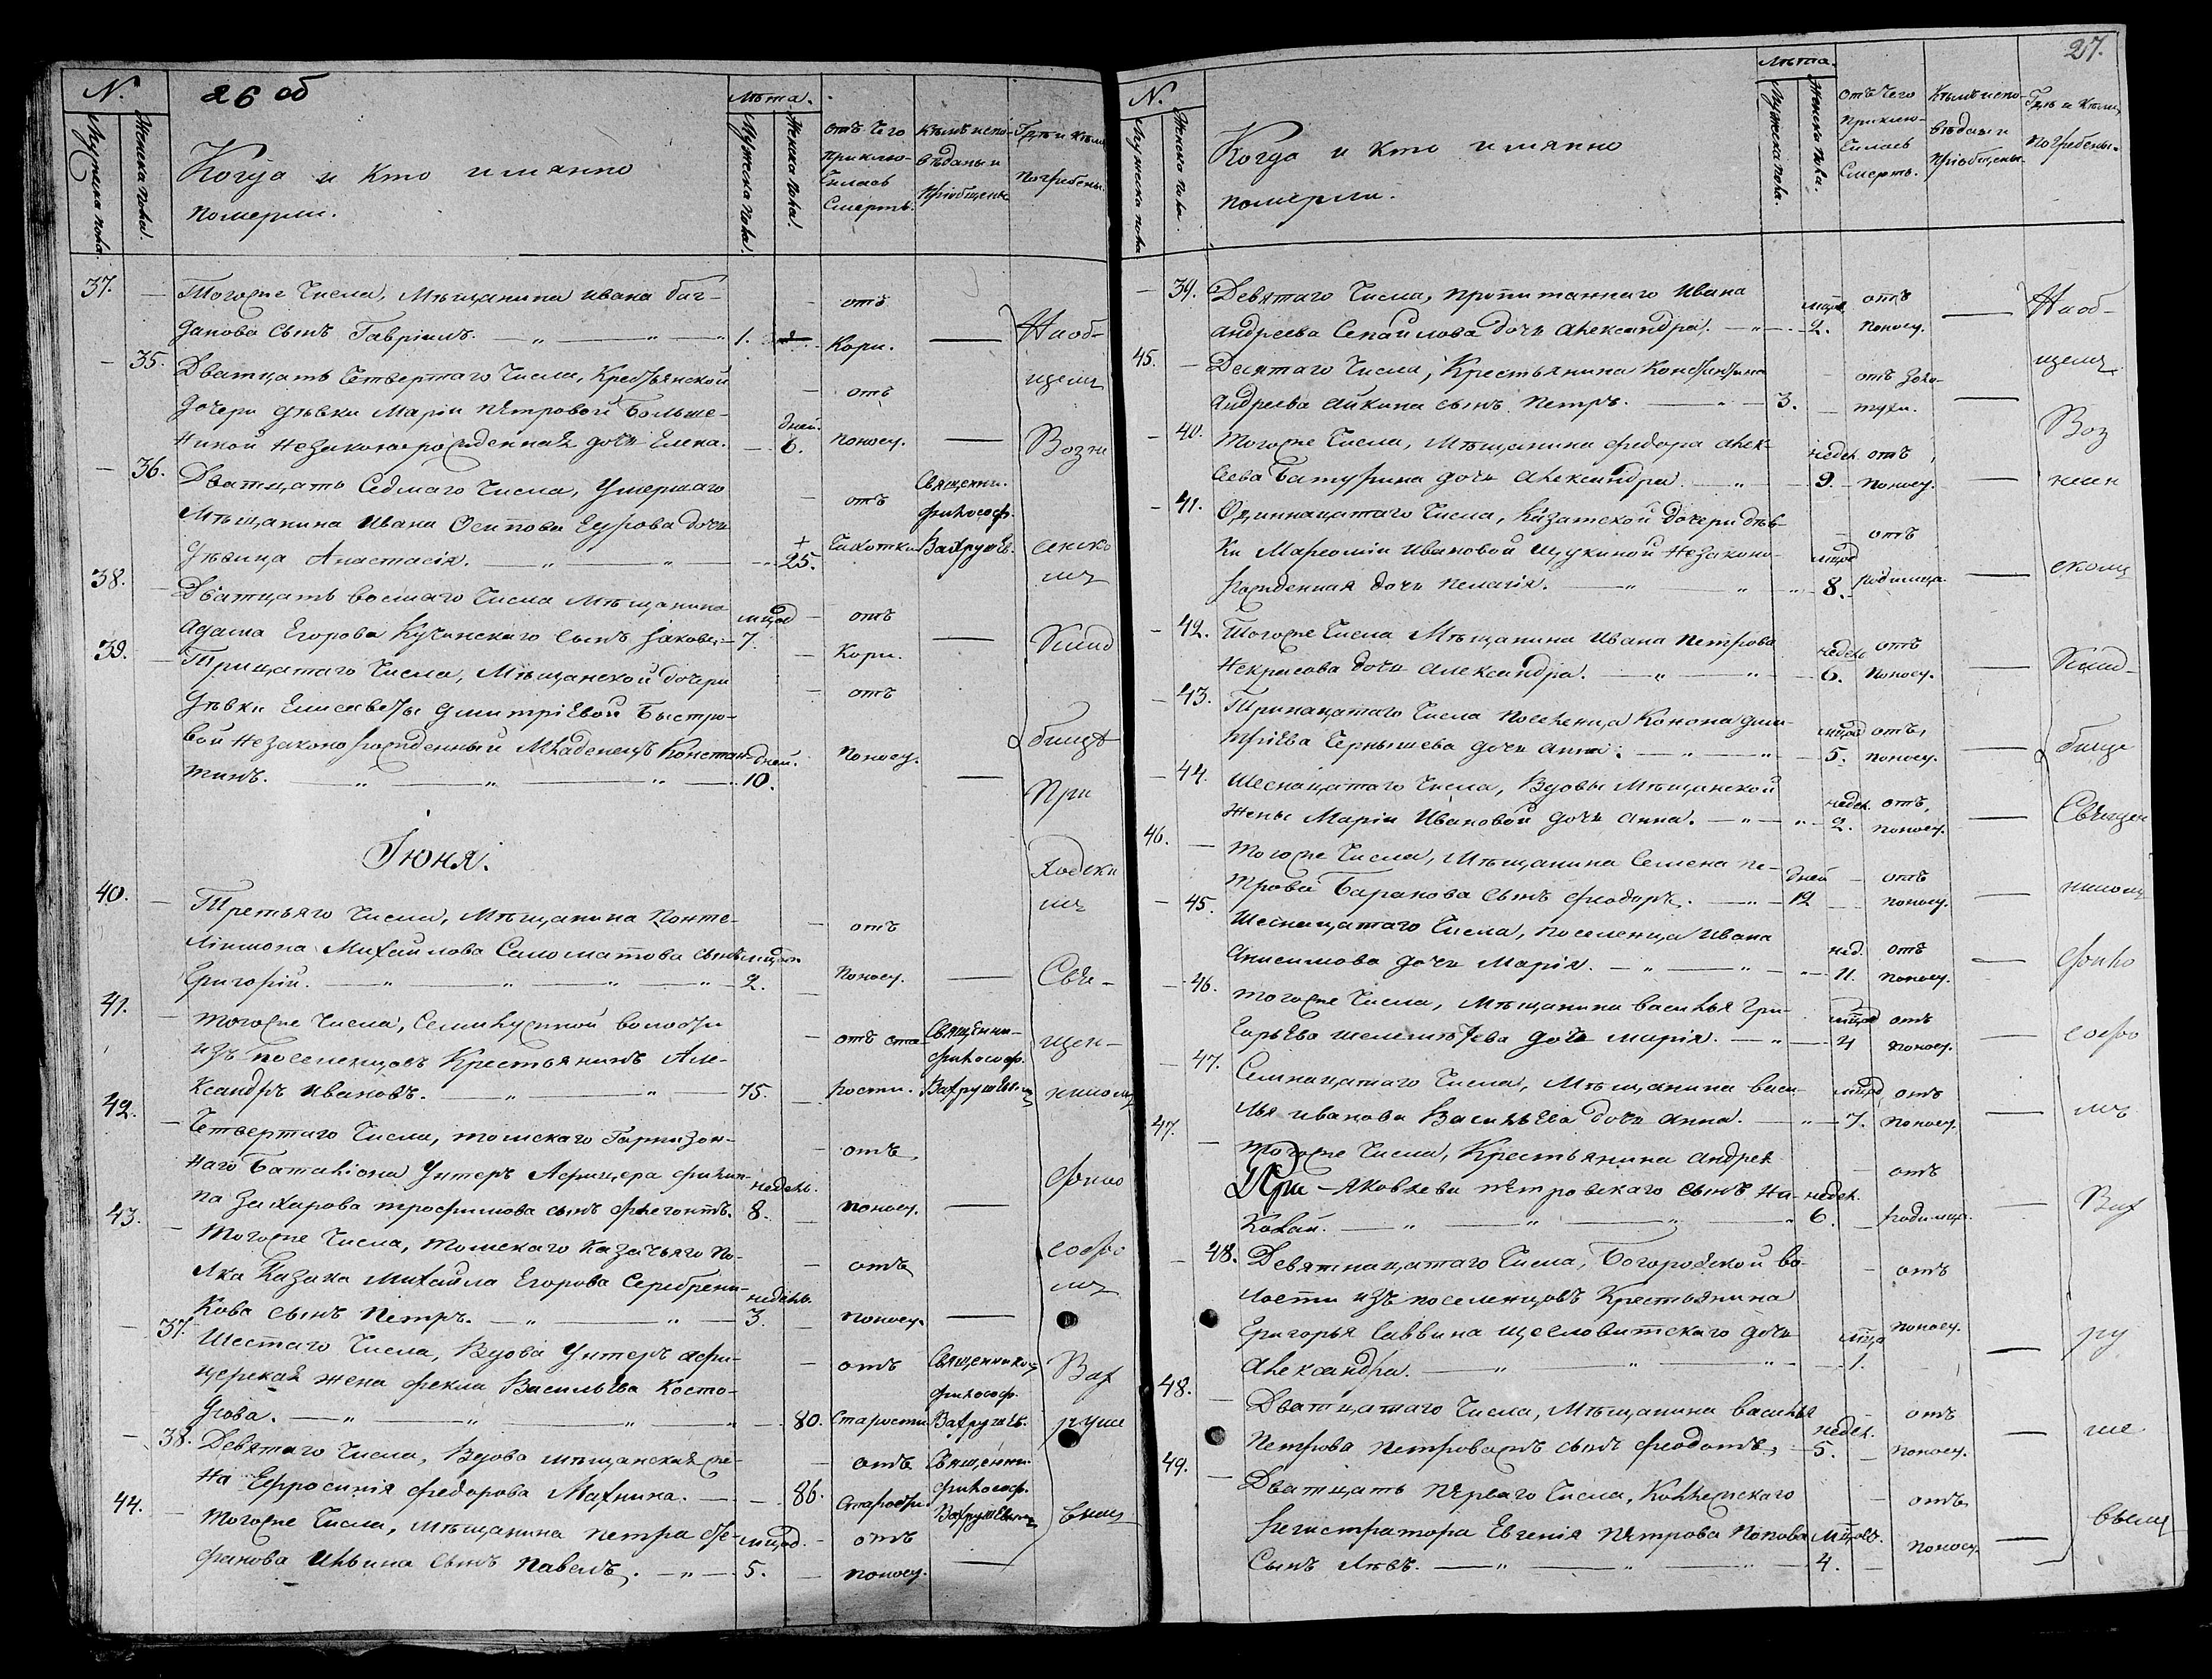 26 об
N.
Мужеска пола.
Женска пола.
Когда и кто имянно
померли.
Лѣта.
Мужеска пола.
Женска пола.
отъ чего
приклю-
чилась
смерть.
кѣмъ испо-
вѣданы и
пріобщены
Гдѣ и кѣмъ
погребены.
37. — Тогоже числа, Мѣщанина Ивана Баг-
данова сынъ Гавріилъ. 1. отъ Кори. —
— 35. Дватцать четвертаго числа, Крестьянской
дочери дѣвки Маріи Петровой Больше-
ниной незаконнорожденная дочь Елена. дней. 6. отъ поносу. —
— 36. Дватцать седмаго числа, умершаго
Мѣщанина Ивана Осипова дочь
дѣвица Анастасія. 25. отъ чихотки Священн. Философ. Вахрушев.
38. — Дватцать восмаго числа Мѣщанина
Адама Егорова Кучинскаго сынъ Іаковъ. мцов 7. отъ Кори. —
39. — Трицатаго числа, Мѣщанской дочери
дѣвки Елисаветы Дмитріевой Быстро-
вой незаконнорожденный младенецъ Констан-
тинъ. дней. 10. отъ поносу. —
Іюня.
40. — Третьяго числа, Мѣщанина Понте-
лимона Михайлова Саломатова сынъ
Григорій. мцов 2. отъ поносу. —
41. — Тогоже числа, Семилужной волости
изъ поселенцовъ Крестьянинъ Але-
ксандръ Ивановъ. 75. отъ ста-рости. Священни-Философ. Вахрушевым
42. — Четвертаго числа, томскаго Гарнизон-
наго Баталіона Унтеръ Афицера Филип-
па Захарова Трофимова сынъ Флегонтъ. недель. 8. отъ поносу. —
43. — Тогоже числа, томскаго казачьяго по-
лка Казака Михайла Егорова Серебрени-
кова сынъ Петръ. недель. 3. отъ поносу. —
— 37. Шестаго числа, Вдова Унтеръ афи-
церская жена Фекла Васильева Косто-
гова. 80. отъ Старости Священнико Философ. Вахрушев.
— 38. Девятаго числа, Вдова мѣщанская же-
на Евросинія Федорова Махнина. 86. отъ Старости Священни Философ. Вахрушевым
44. — Тогоже числа, мѣщанина Петра Сте-
фанова Ильина сынъ Павелъ. мцов. 5. отъ поносу. —
На об-
щемъ
Возне
сенско
мъ
Клад
бищѣ
При
ходски
мъ
Свя-
щен-
никомъ
Фило
софо
мъ
Вах
руше
вымъ
27.
N.
Мужеска пола
Женска пола.
Когда и кто имянно
померли.
Лѣта.
Мужеска пола.
Женска пола.
отъ чего
приклю-
чилась
смерть.
Кѣмъ испо-
вѣданы и
пріобщены
Гдѣ и кѣмъ
погребены.
— 39. Девятаго числа, пропитаннаго Ивана
Андреева Сепайлова дочь Александра. мцов. 2. отъ поносу. —
45. — Десятаго числа, Крестьянина Констинтина
Андреева Айкина сынъ Петръ. 3. отъ золо-тухи. —
— 40. Тогоже числа, Мѣщанина Федора Алек-
сева Батурина дочь Александра. недел. 9. отъ поносу. —
— 41. Одиннацатаго числа, Казатской дочери дѣв-
ки Марфы Ивановой Щукиной незаконно-
рожденная дочь Пелагія. мцов 8. отъ родимца —
— 42. Тогоже числа Мѣщанина Ивана Петрова
Некрасова дочь Александра. недель 6. отъ поносу. —
— 43. Тринацатаго числа поселенца Конона Дми-
тріева Чернышева дочь Анна. мцов 5. отъ поносу. —
— 44. Шеснацатаго числа, Вдовы Мѣщанской
жены Маріи Ивановой дочь Анна. недел. 2. отъ поносу. —
46. — Тогоже числа, Мѣщанина Семена Пе-
трова Баранова сынъ Феодоръ. дней 12 отъ поносу. —
— 45. Шеснацатаго числа, поселенца Ивана
Анисимова дочь Марія. нед. 11. отъ поносу. —
— 46. Тогоже числа, Мѣщанина Василья Гри-
горьева дочь Марія. мцов 4 отъ поносу. —
— 47. Семнацатаго числа, Мѣщанина Васи-
лья Иванова Васильева дочь Анна. мцов 7. отъ поносу. —
47. — Тогоже числа, Крестьянина Андрея
Яковлева Петровскаго сынъ Ни-
колай. недел. 6. отъ родимца. —
— 48. Девятнацатаго числа, Богородской во-
лости изъ поселенцовъ Крестьянина
Григорья Саввина дочь
Александра. мца 1. отъ поносу. —
48. — Дватцатаго числа, Мѣщанина Василья
Петрова сынъ Феодотъ. недел. 5. отъ поносу. —
49. — Дватцать перваго числа, Коллежскаго
регистратора Евгенія Петрова Попова
сынъ Левъ. мцовъ. 4. отъ поносу. —
На об-
щемъ
Воз
несен
скомъ
Клад-
бище
Священ
никомъ
Фило
софо
мъ
Вах
ру
ше
вымъ